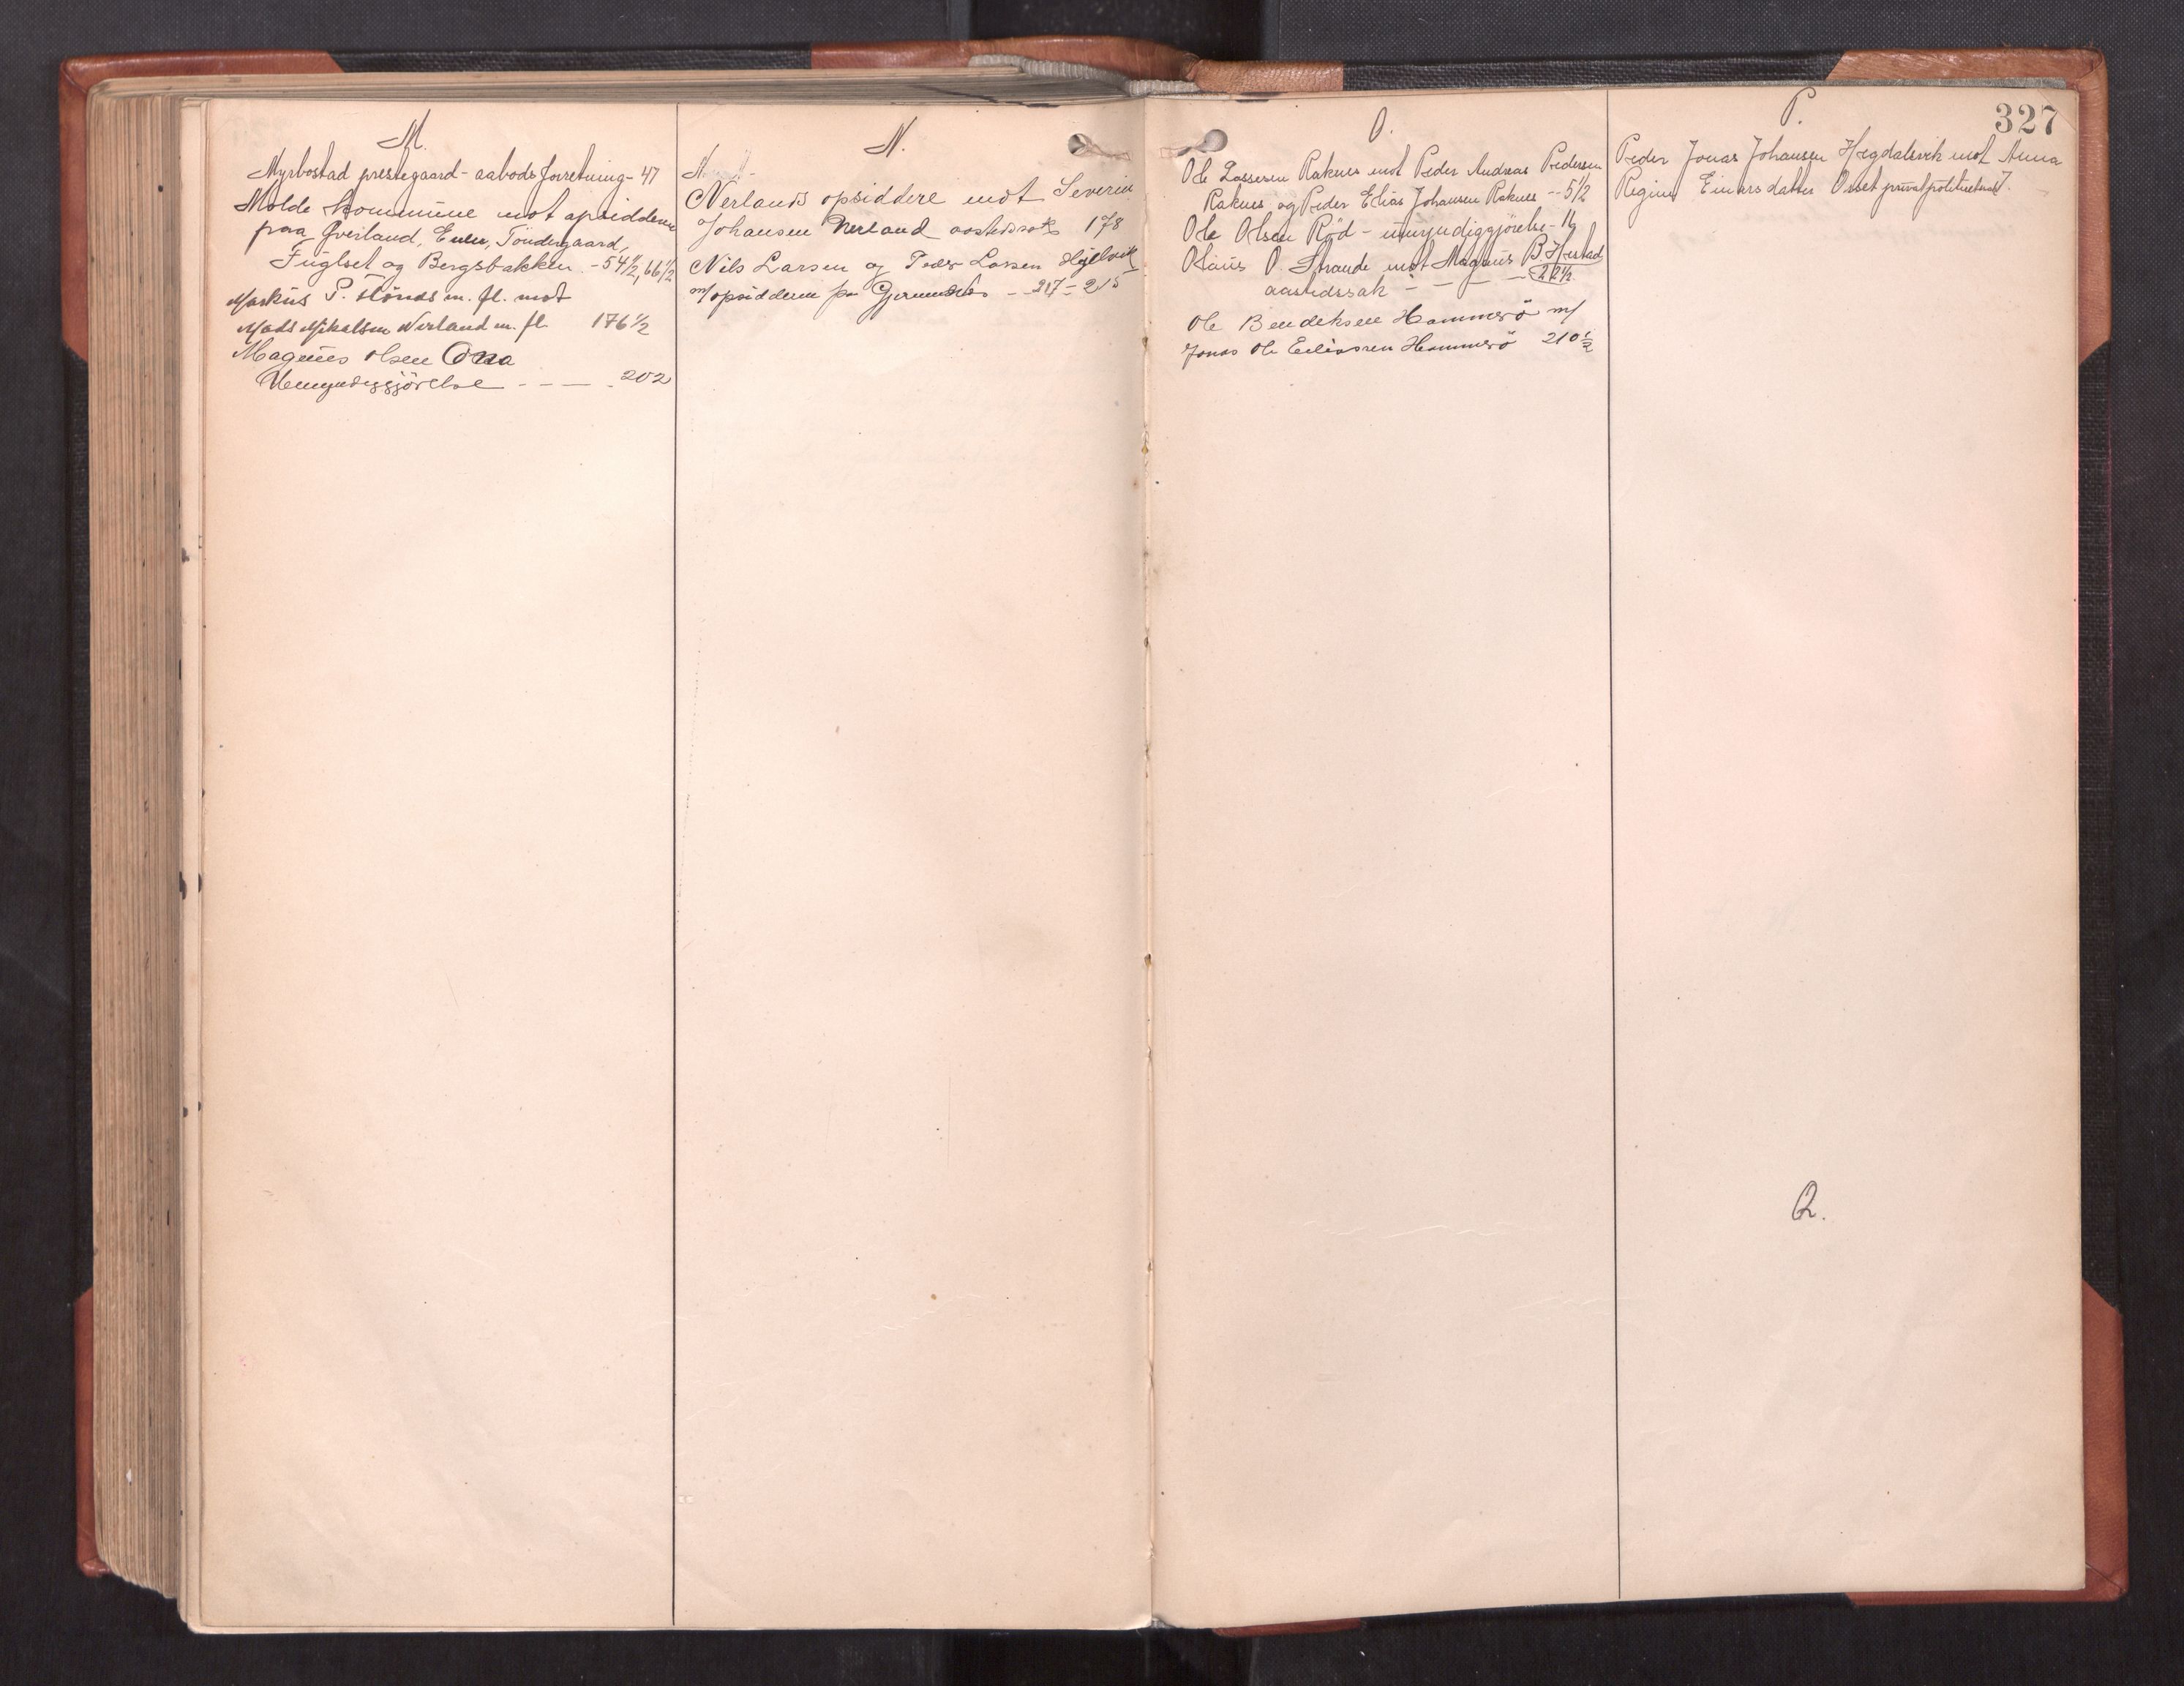 M.
Myrbostad prestegaard - aabodsforretning - 47
Molde kommune mot opsidderne
paa Øverland, Enen, Töndergaard,
Fuglset og Bergsbakken - 54 1/2, 66 1/2
Markus P. Stönds m. fl. mot
Mads Mikalsen Nerland m. fl. 176 1/2
Magnus Olsen Ona
Umyndiggjörelse - - - 202
N.
N
Nerlands opsiddere mot Severin
Johansen Nerland aastedssak 178
Nils Larsen og Peder Larsen Hjelvik
m/ opsidderne på Gjermundnes - - 217 - 215
O.
Ole Lassesen Raknes mot Peder Andreas Pedersen
Raknes og Peder Elias Johansen Raknes - - 5 1/2
Ole Olsen Rød - umyndiggjörelse - 16
Olaus O. Strande mot Magnus B. Hestad
aastedssak - - - - 22 1/2
Ole Bendiksen Hammerö m/
Jonas Ole Eeliassen Hammerö 210 1/2
P.
327
Peder Jonas Johansen Hegdalsvik mot Anna
Regine Einarsdatter Orset privat politisak 7.
Q.